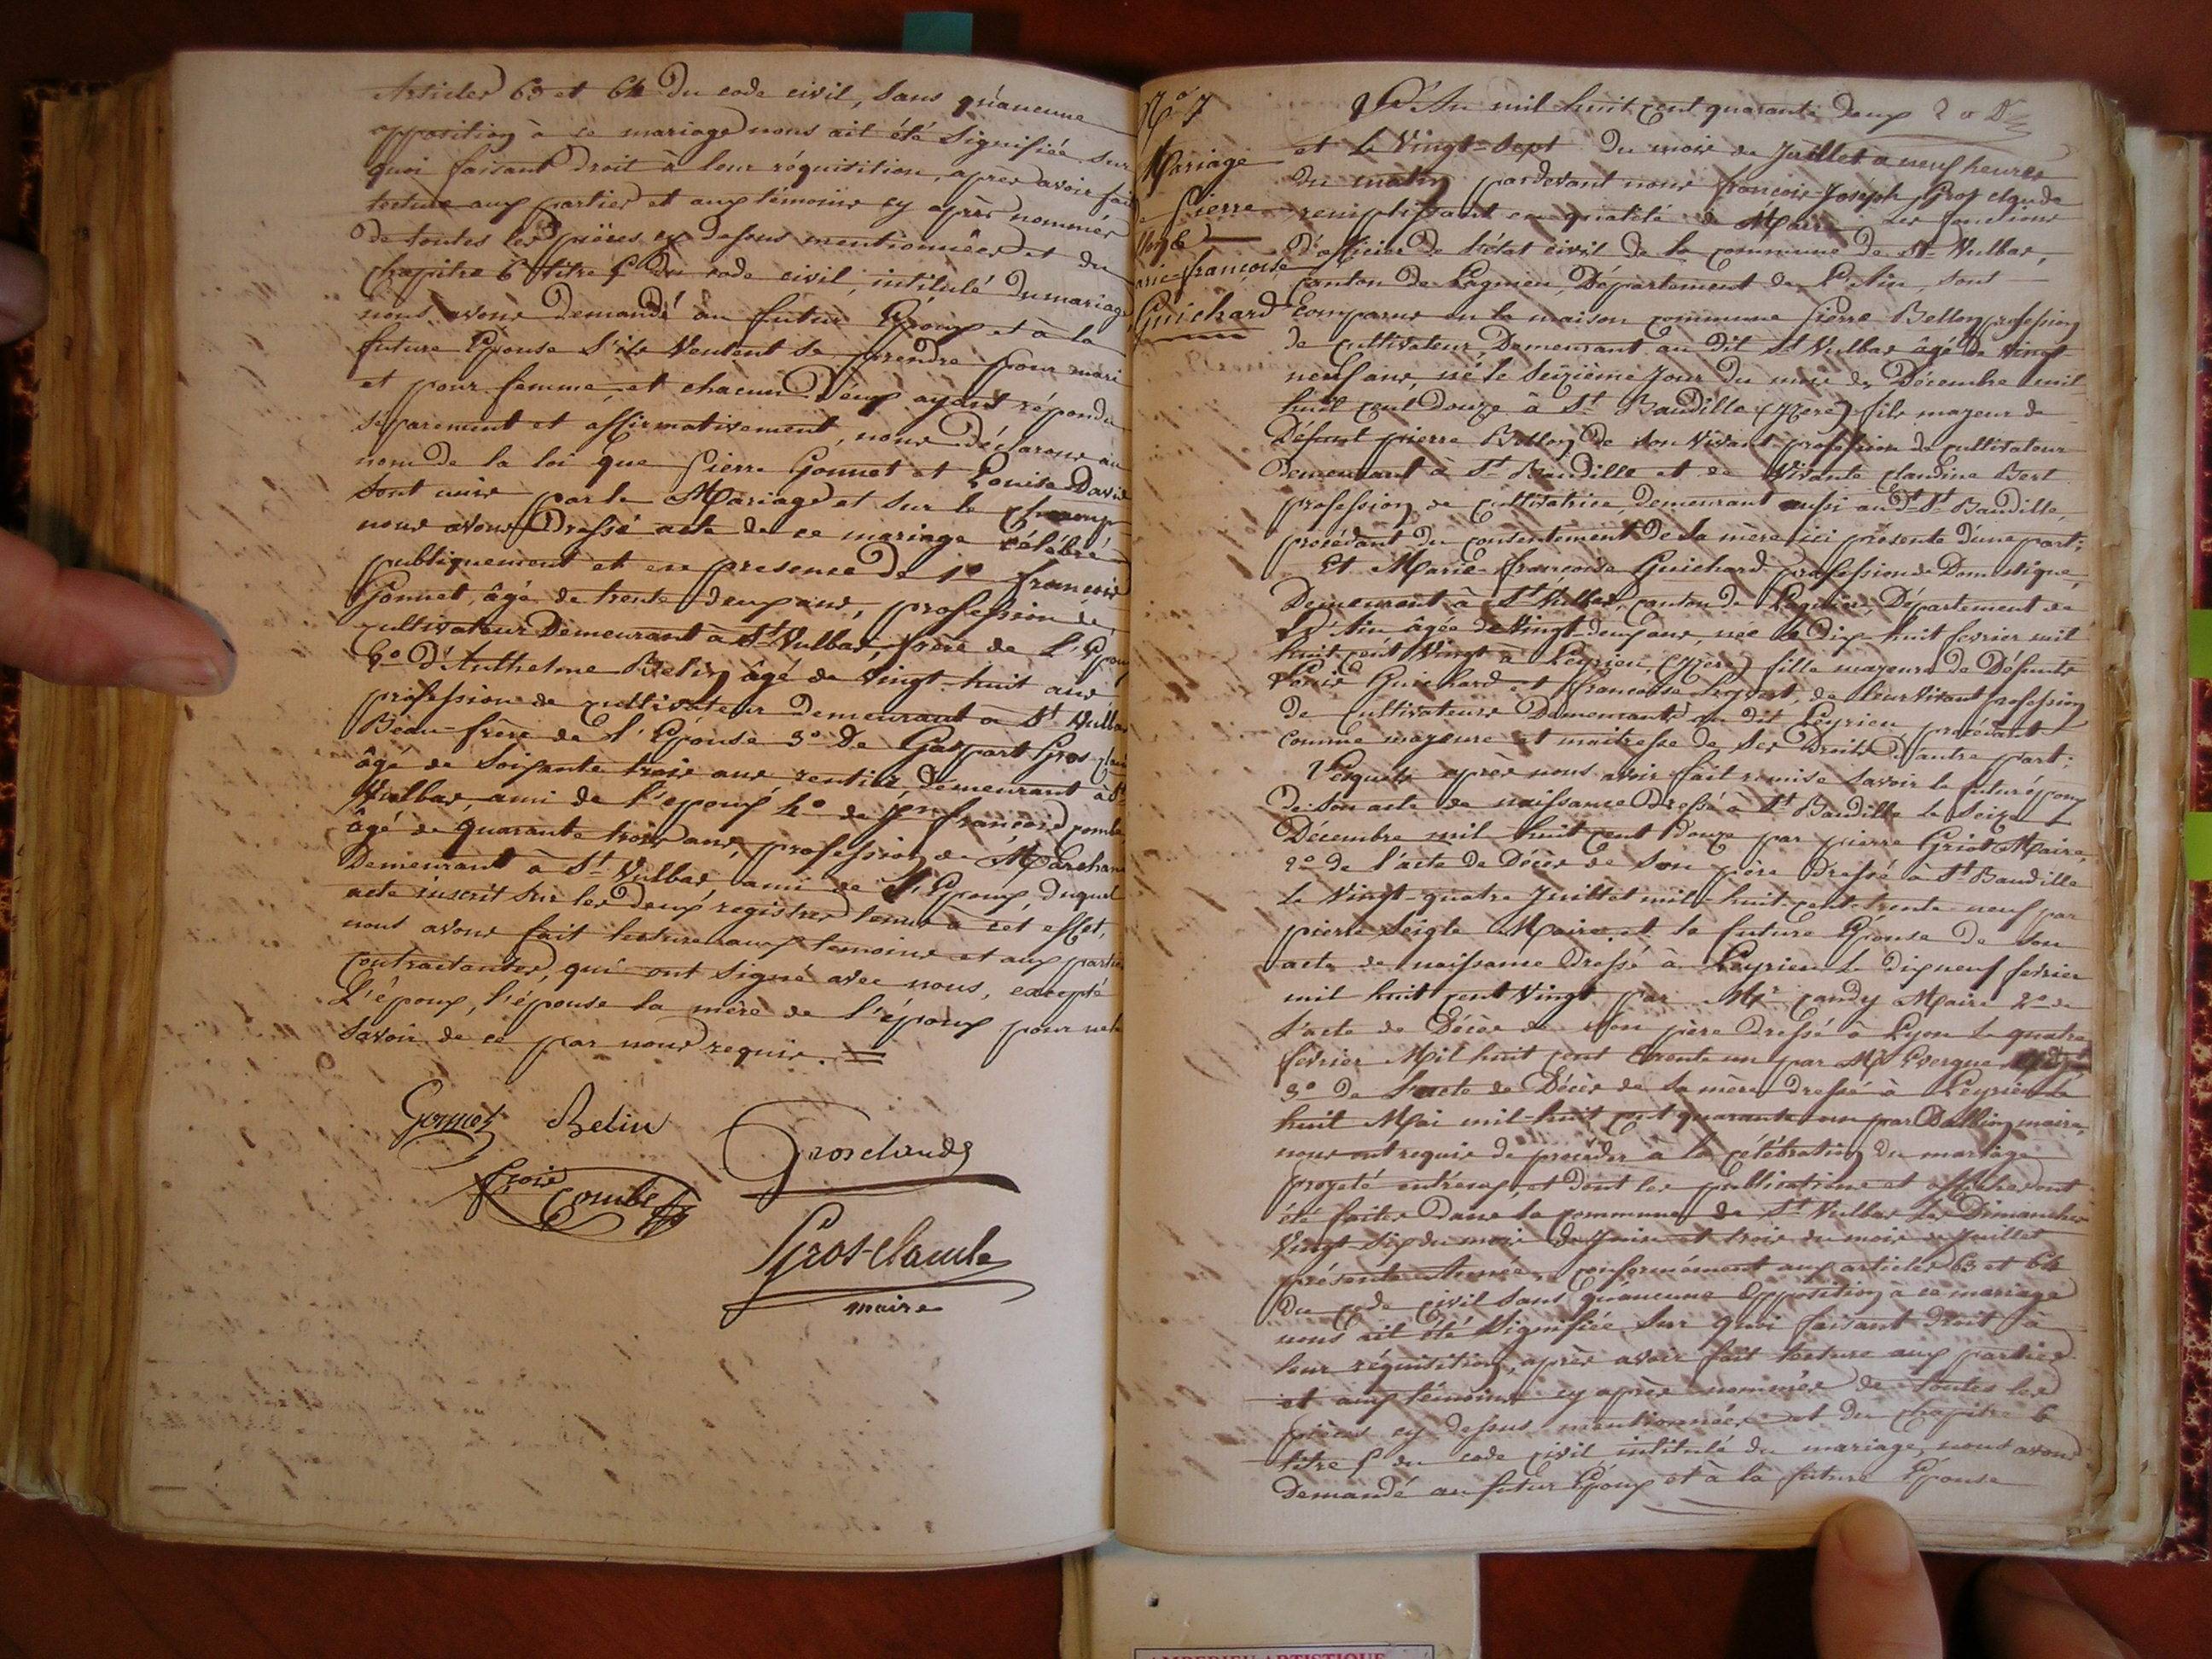 Articles 63 et 64 du code civil, sans qu'aucune
opposition à ce mariage nous ait été signifiée sur
quoi faisant droit à leur réquisition, après avoir fait
lecture aux parties et aux témoins cy après nommés
de toutes les pièces cy dessus mentionnées et du
chapitre 6 titre 5 du code civil, intitulé du mariage
nous avons demandé au futur Epoux et à la
future Epouse s'ils veulent se prendre pour mari
et pour femme, et chacun d'eux ayant répondu
séparement et affirmativement, nous déclarons au
nom de la loi que Pierre Gonnet et Louise David
sont unis par le Mariage et sur le champ
nous avons dressé acte de ce mariage célébré
publiquement et en presence de 1º françois
Gonnet, âgé de trente deux ans, profession de
cultivateur demeurant à St Vulbas, frère de l'Epoux
2º d'Anthelme Belin âgé de vingt-huit ans
profession de cultivateur demeurant à St Vulbas
Beau-frère de l'Epouse 3º de Gaspart Gros-
âgé de soixante trois ans rentier demeurant à St
Vulbas, ami de l'epoux 4º de françois
âgé de quarante trois ans, profession de Marchand
demeurant à St Vulbas, ami de l'Epoux, duquel
acte inscrit sur les deux registres tenus à cet effet,
nous avons fait lecture aux temoins et aux parties
contractantes, qui ont signé avec nous, excepté
l'époux, l'épouse la mère de l'époux pour ne le
savoir de ce par nous requis.
Gonnet Belin
Grosclaude
Combe
Gros-Claude
maire
Nº 7
Mariage
Pierre
Guichard
L'An mil huit cent quarante deux
et le Vingt-Sept du mois de Juillet a neuf heures
du matin pardevant nous françois-Joseph Gros claude
remplissant en qualité de Maire les fonctions
d'officier de l'état civil de la commune de St Vulbas,
canton de Lagnieu, Département de l'Ain, sont
Comparus en la maison commune Pierre Bellon profession
de cultivateur, Demeurant au dit St Vulbas âgé de vingt
neuf ans, né le seizième jour du mois de Décembre mil
huit cent douze à St Baudille (Yzère) fils mageur de
Défunt pierre Bellon de son vivant profession de cultivateur
demeurant à St Baudille et de vivante claudine Bert
profession de cultivatrice, demeurant aussi au dt St Baudille,
procédant du consentement de sa mère ici présente d'une part;
Et Marie-françoise Guichard profession de Domestique,
Demeurant à St Vulbas, canton de Lagnieu, Département de
L'Ain âgée de vingt-deux ans, née le dix-huit fevrier mil
huit cent vingt à Leyrieu (Yzère) fille mageure de Défunts
Guichard et françoise de leur vivant profession
de Cultivateurs Demeurants au dit Leyrieu, procédant
comme mageure et maitresse de ses Droits d'autre part;
Lesquels après nous avoir fait remise savoir le futur époux
de son acte de naissance dressé à St Baudille le Seize
Décembre mil huit cent douze par pierre Griot Maire,
2º de l'acte de Décès de son père dressé à St Baudille
le Vingt-quatre Juillet mil-huit-cent-trente neuf par
pierre Seigle Maire, et la future Epouse de son
acte de naissance dressé à Leyrieu le dix neuf fevrier
mil huit cent vingt par Mr candy Maire 2º de
l'acte de Décès de son père dressé à Lyon le quatre
fevrier Mil huit cent trente un par Mr
3º de l'acte de Décès de sa mère dressé à Leyrieu le
huit Mai mil-huit cent quarante un par maire,
nous ont requis de procéder à la célébration du mariage
projeté entr'eux, et dont les publications et affiches ont
été faites dans la commune de St Vulbas les Dimanches
vingt-six du mois de Juin et trois du mois de juillet
présente Année, conformément aux articles 63 et 64
du code civil sans qu'aucune opposition à ce mariage
nous ait été signifiée sur quoi faisant droit à
leur réquisition, après avoir fait lecture aux parties
et aux témoins cy après nommés de toutes les
pièces cy dessus mentionnées et du chapitre 6
titre 5 du code civil intitulé du mariage, nous avons
demandé au futur Epoux et à la future Epouse